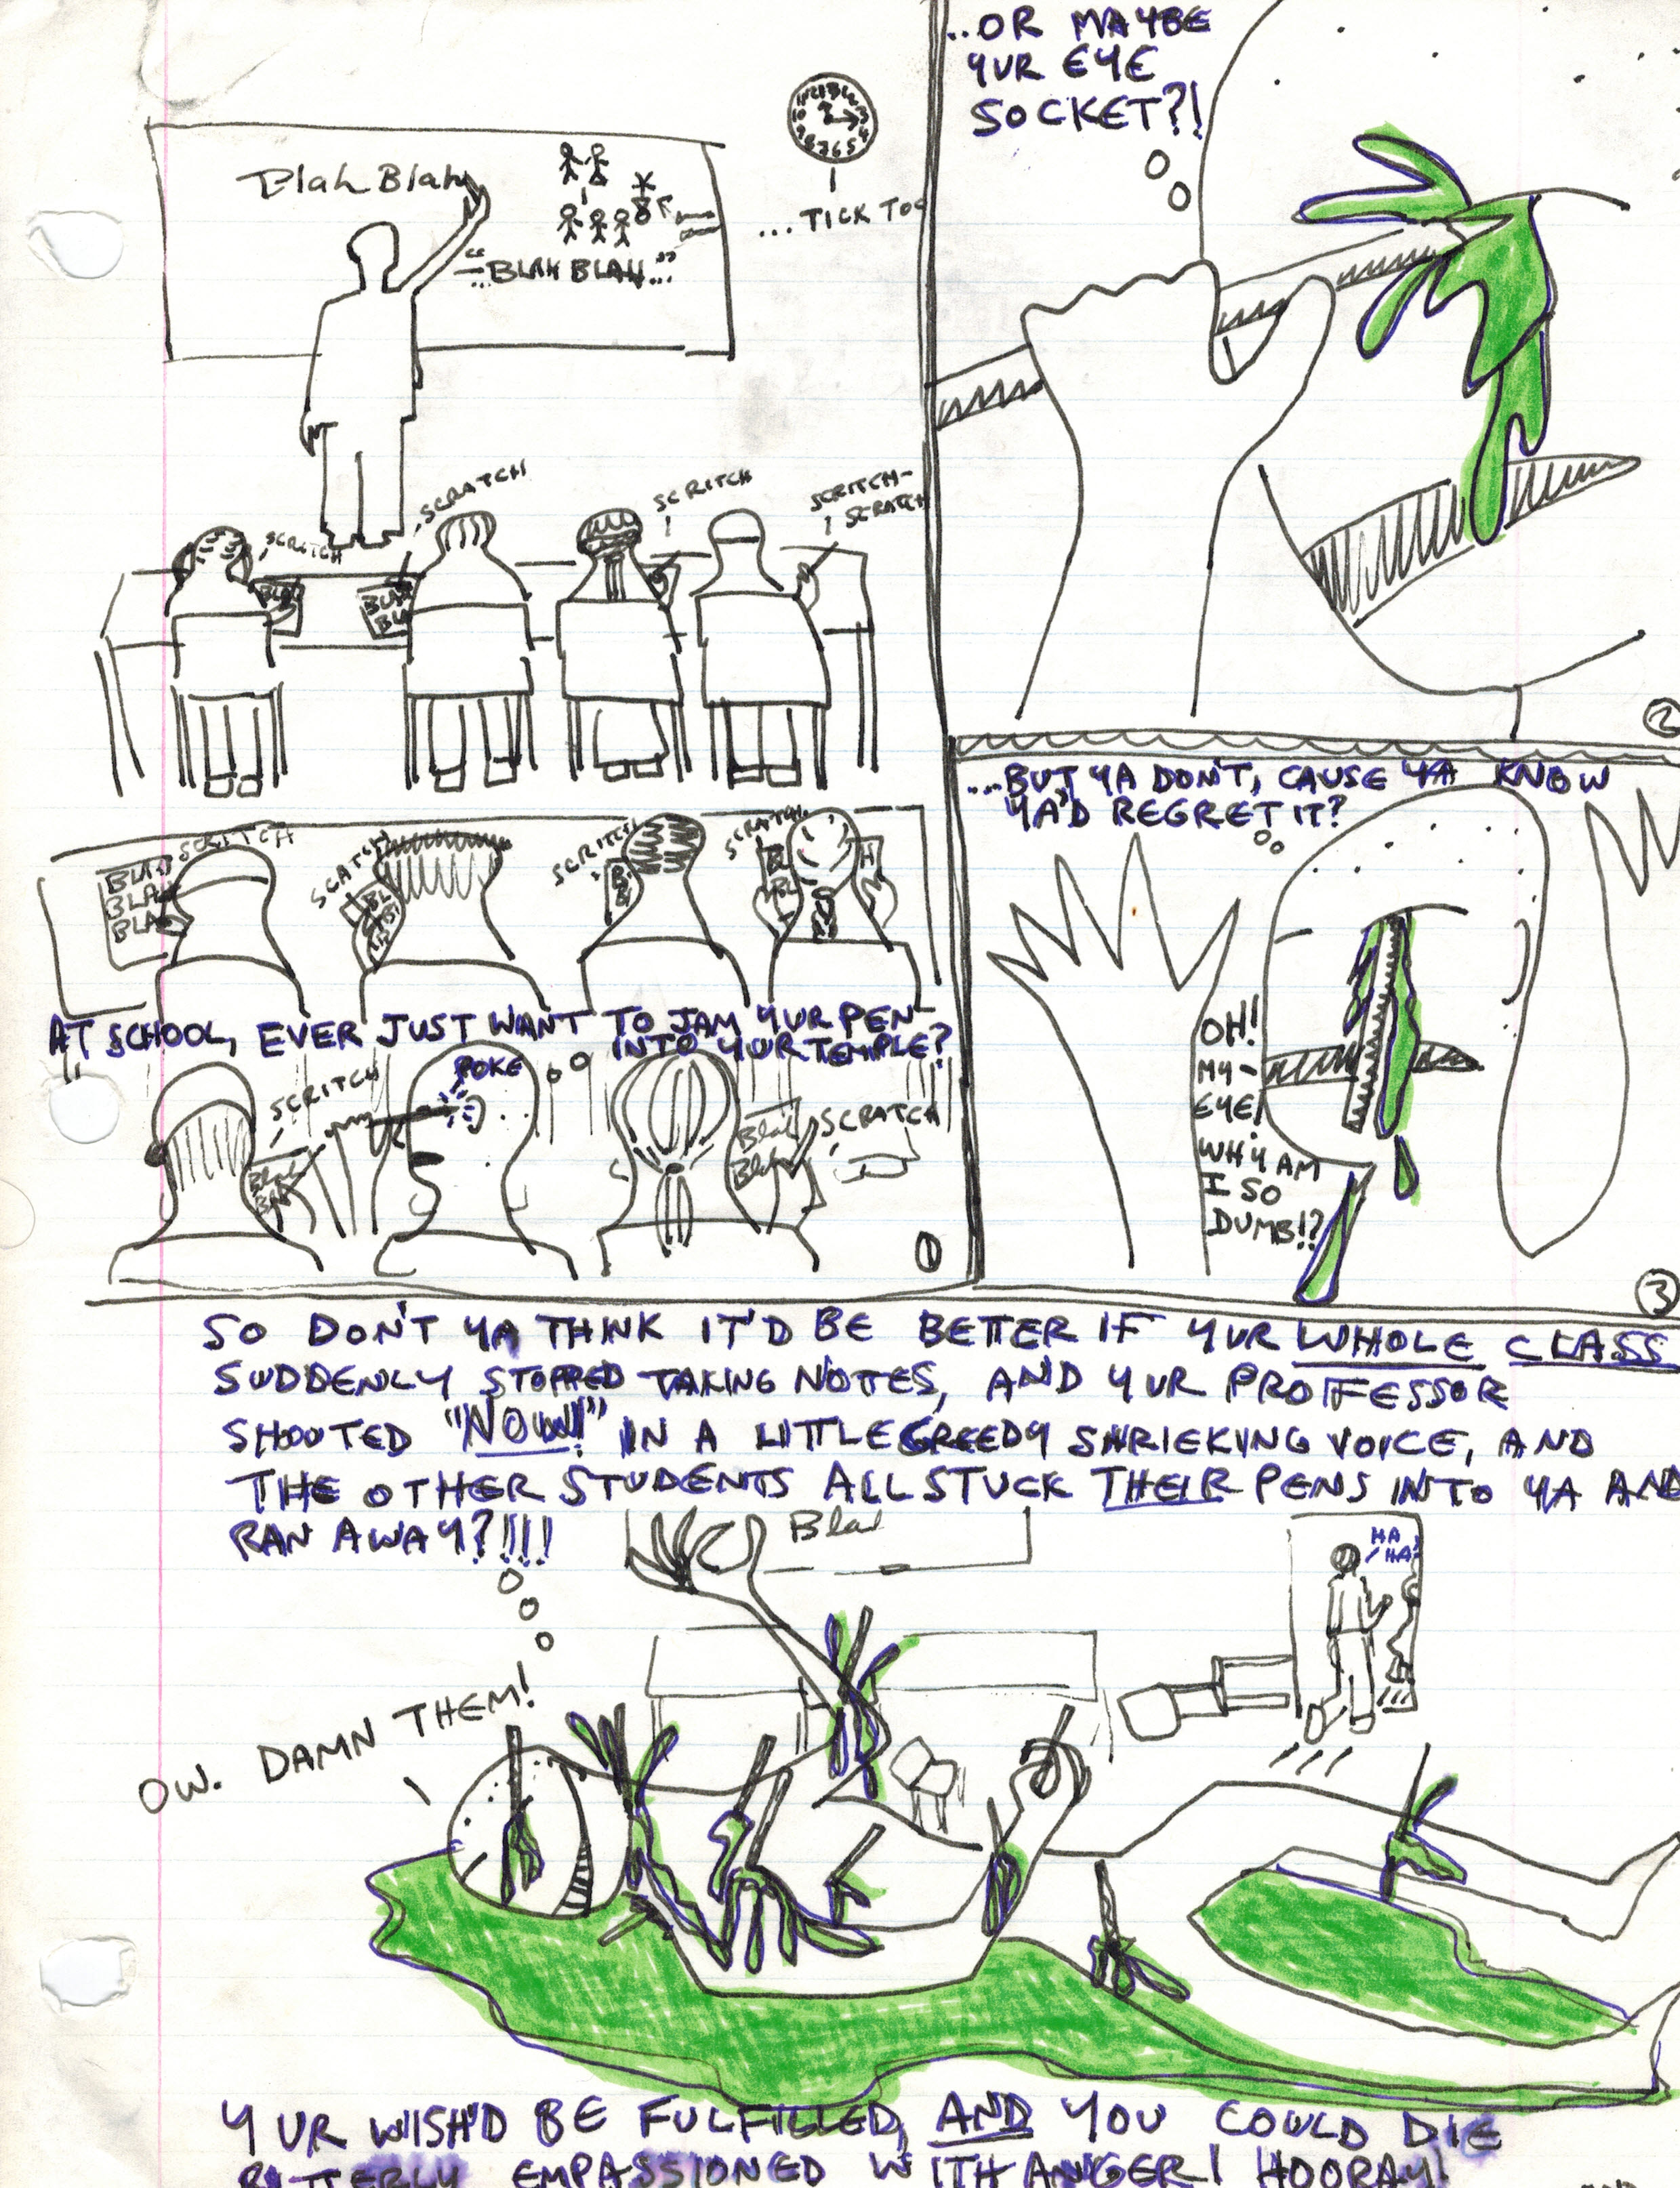 Blah Blah
"BLAH BLAH..."
...TICK TOC
SCRITCH
SCRATCH
SCRITCH
SCRITCH-
SCRATCH
BLAH
BLAH
BLA
SCRITCH
BLAH
BLA
BLA
SCATCH
BL
SCRITCH
SCRATCH
BL
BL
H
AT SCHOOL, EVER JUST WANT TO JAM YUR PEN
INTO YUR TEMPLE?
POKE
SCRITCH
Blah
Blah
Blah
SCRATCH
1
...OR MAYBE
YUR EYE
SOCKET?!
2
...BUT YA DON'T, CAUSE YA KNOW
YA'D REGRET IT?
OH!
MY-
EYE!
WHY AM
I SO
DUMB!?
3
SO DON'T YA THINK IT'D BE BETTER IF YUR WHOLE CLASS
SUDDENLY STOPPED TAKING NOTES, AND YUR PROFFESSOR
SHOUTED "NOW!" IN A LITTLE GREEDY SHRIEKING VOICE, AND
THE OTHER STUDENTS ALL STUCK THEIR PENS INTO YA AND
RAN AWAY?!!!!
Bla
HA
HA!
OW. DAMN THEM!
YUR WISH'D BE FULFILLED, AND YOU COULD DIE
BITTERLY EMPASSIONED WITH ANGER! HOORAY!